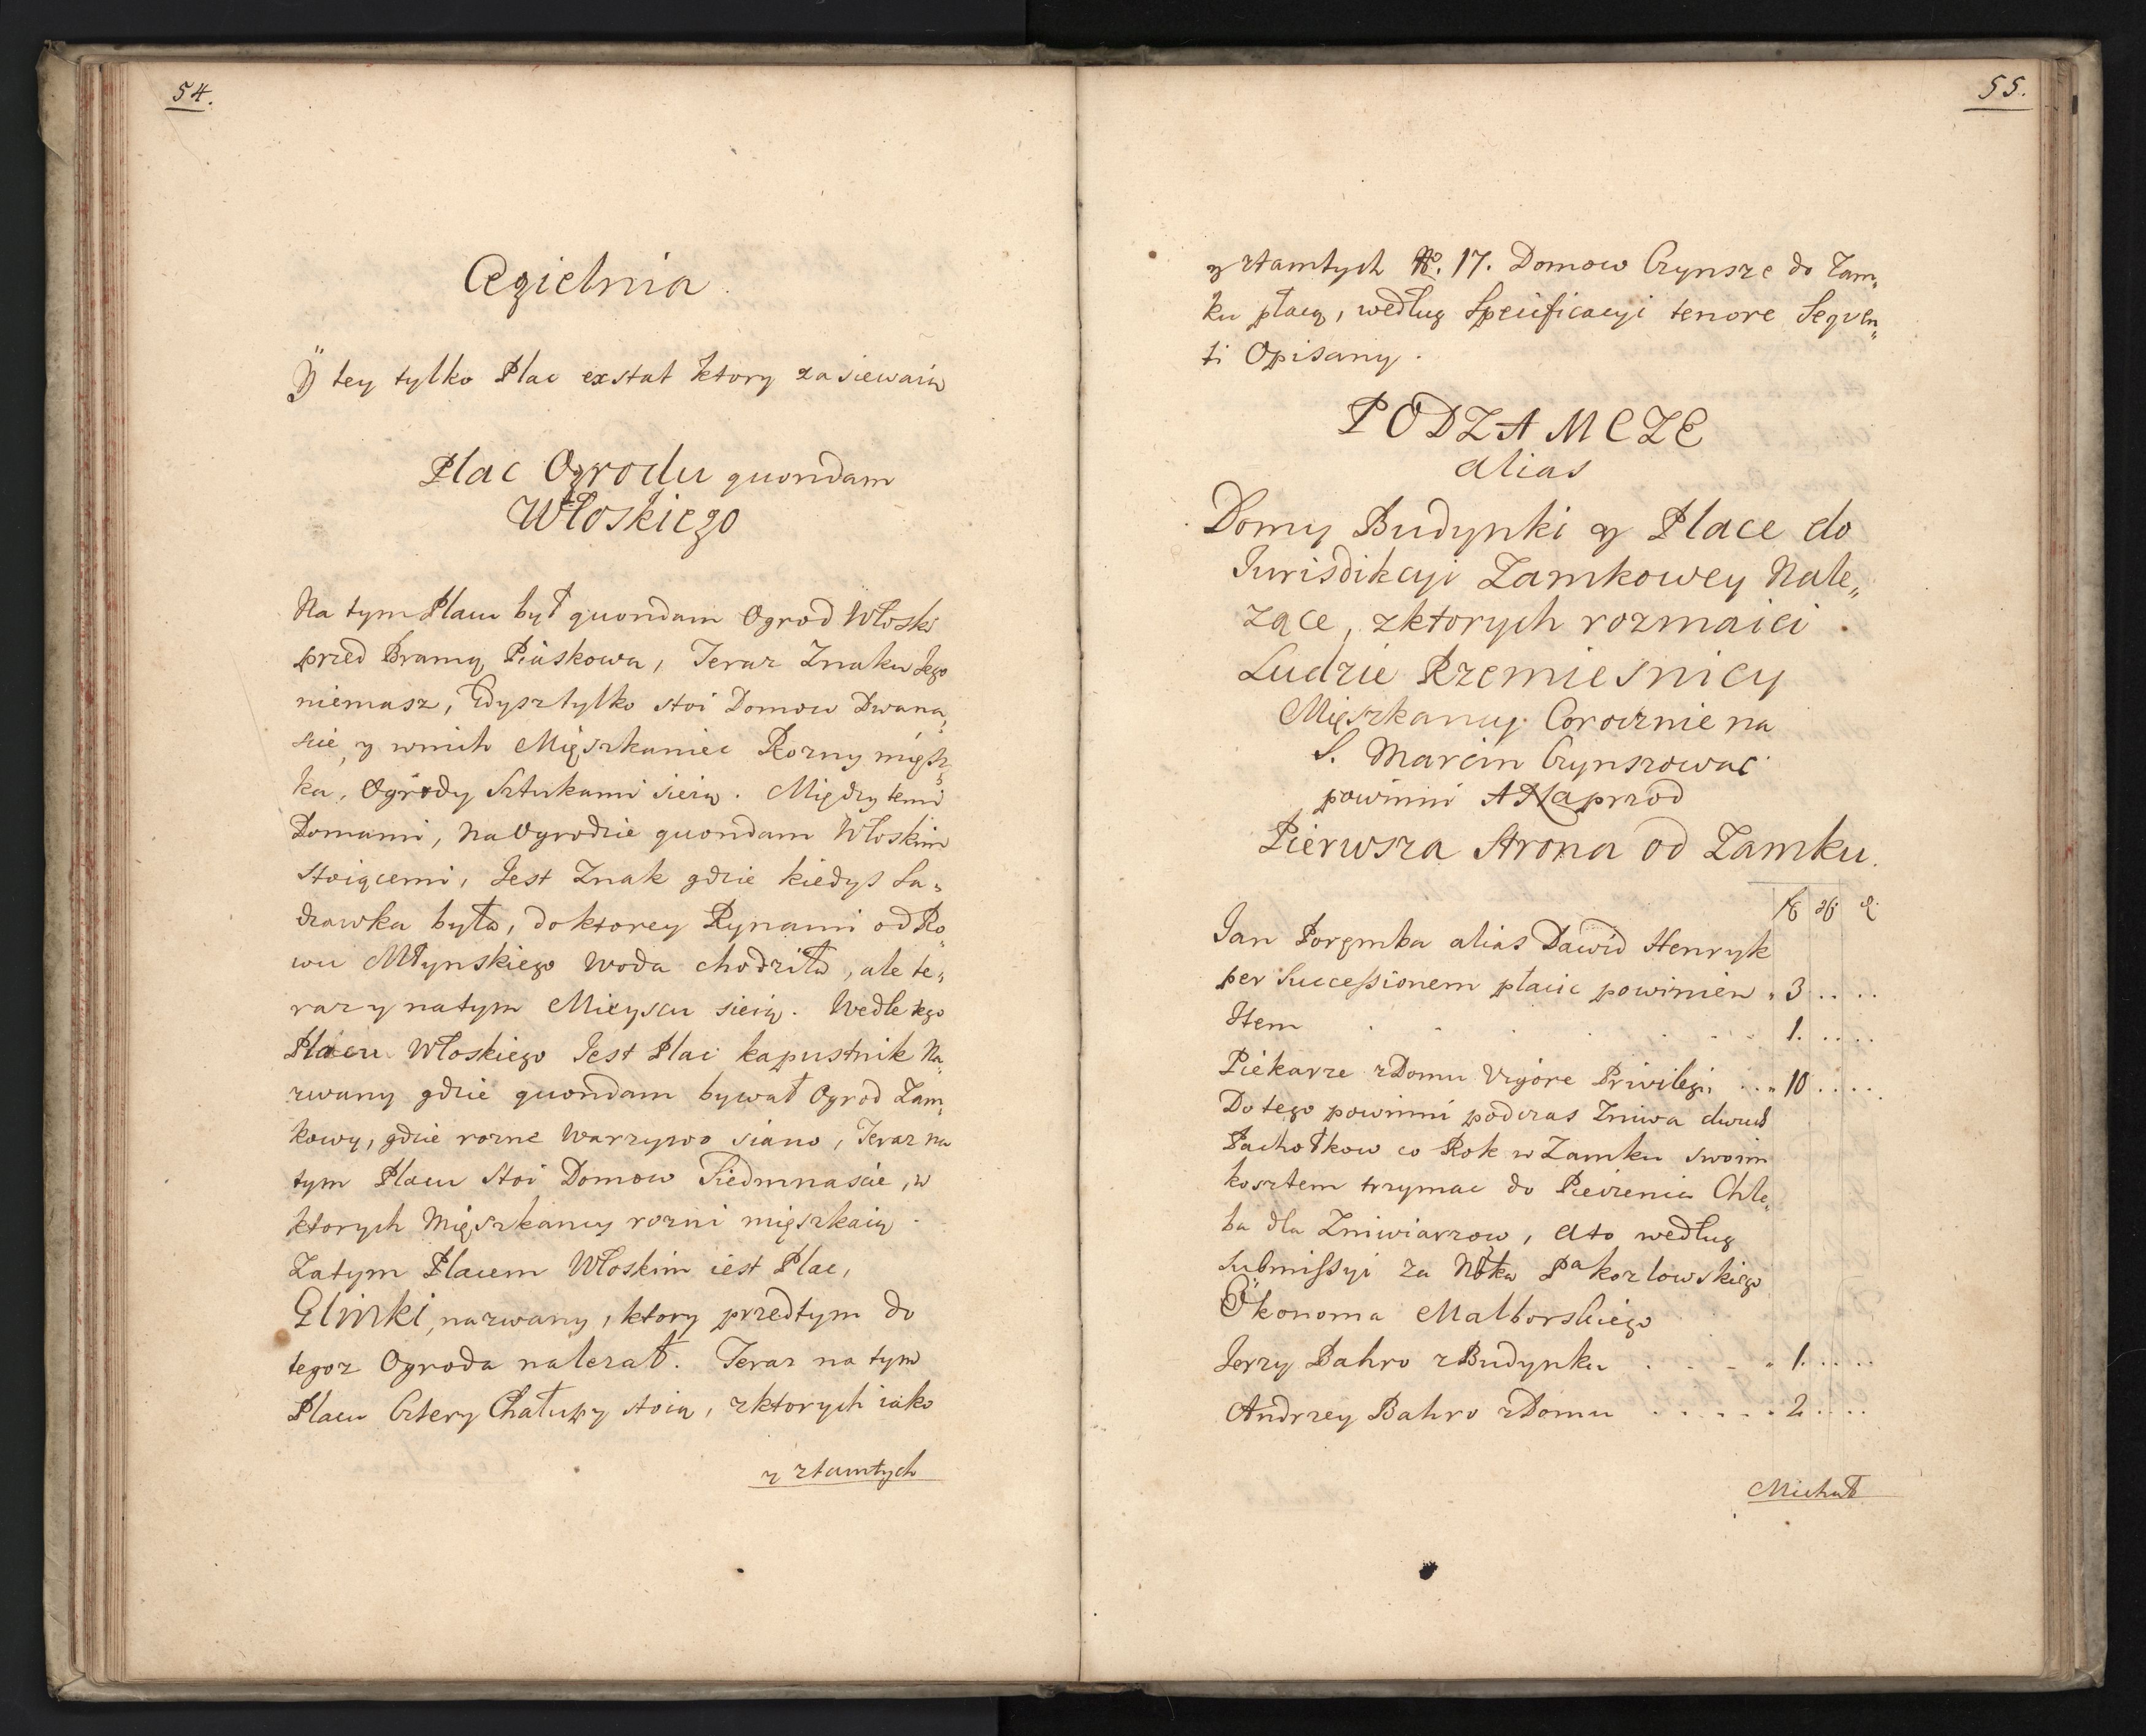 54.
Cegielnia
Y tey tylko Plac exstat ktory zasiewaią
Plac Ogrodu quondam
Włoskiego
Na tym Placu był quondam Ogrod Włoski
przed Bramą Piaskową, Teraz Znaku Jego
niemasz, Gdysz tylko stoi Domow Dwana„
scie, y w nich Mięszkaniec Rozny mięsz„
ka, Ogrody Sztukami sieią. Między temi
Domami, na Ogrodzie quondam Włoskim
stoiącemi, Jest Znak gdzie kiedyś Sa„
dzawka była, do ktorey Rynami od Ro„
wu Młynskiego woda chodziła, ale te„
raz y na tym Mieyscu sieią. Wedle tego
Placu Włoskiego Jest Plac kapustnik Na„
zwany gdzie quondam bywał Ogrod Zam„
kowy, gdzie rozne Warzywo siano, Teraz na
tym Placu Stoi Domow Siedmnascie, w
ktorych Mięszkancy rozni mięszkaią.
Za tym Placem Włoskim iest Plac,
Glinki, nazwany, ktory przedtym do
tegoz Ogroda nalezał. Teraz na tym
Placu Cztery Chałupy stoią, z ktorych iako
y ztamtych
55.
y ztamtych No. 17. Domow Czynsze do Zam„
ku płacą, według Specificacyi tenore Seqven„
ti Opisany.
PODZAMCZE
alias
Domy Budynki y Place do
Jurisdikcyi Zamkowey Nale„
zące, z ktorych rozmaici
Ludzie Rzemiesnicy
Mięszkancy Corocznie na
S. Marcin Czynszowac
powinni A Naprzod
Pierwsza Strona od Zamku.
Jan Poręmba alias Dawid Henryk
per Successionem płacic powinien „ 3 . . . .
Item . . . . . . 1. . . . .
Piekarze z Domu Vigore Privilegii . . „ 10 . . . .
Do tego powinni podczas Zniwa dwuch
Pachołkow co Rok w Zamku swoim
kosztem trzymac do Pieczenia Chle„
ba dla Zniwiarzow, a to według
submissyi za Pa kozlowskiego
Ökonoma Malborskiego
Jerzy Bahro z Budynku . . . . „ 1. . . . .
Andrzey Bahro z Domu . . . . . . 2 . . . .
Michał